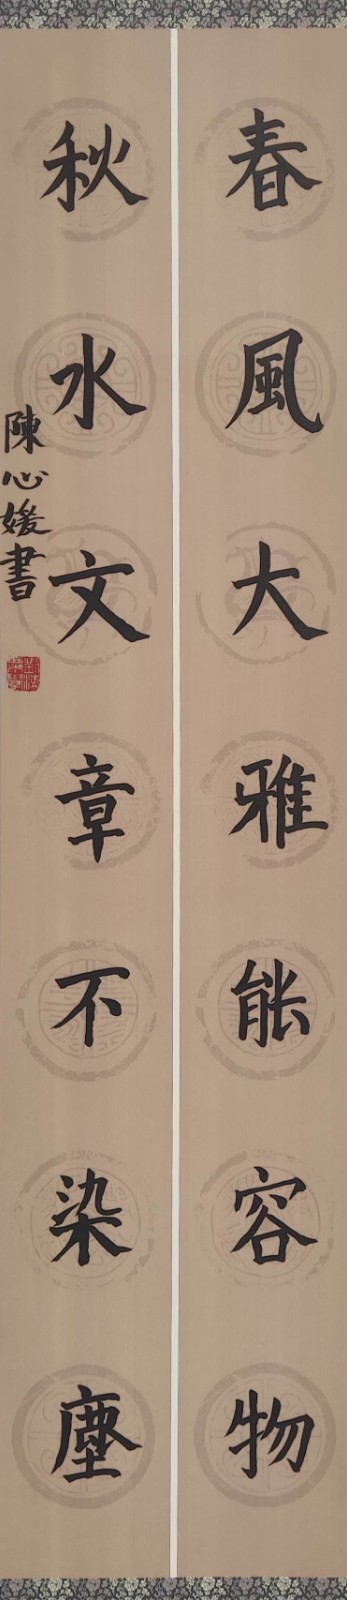 春風大雅能容物
秋水文章不染塵
陳心媛書